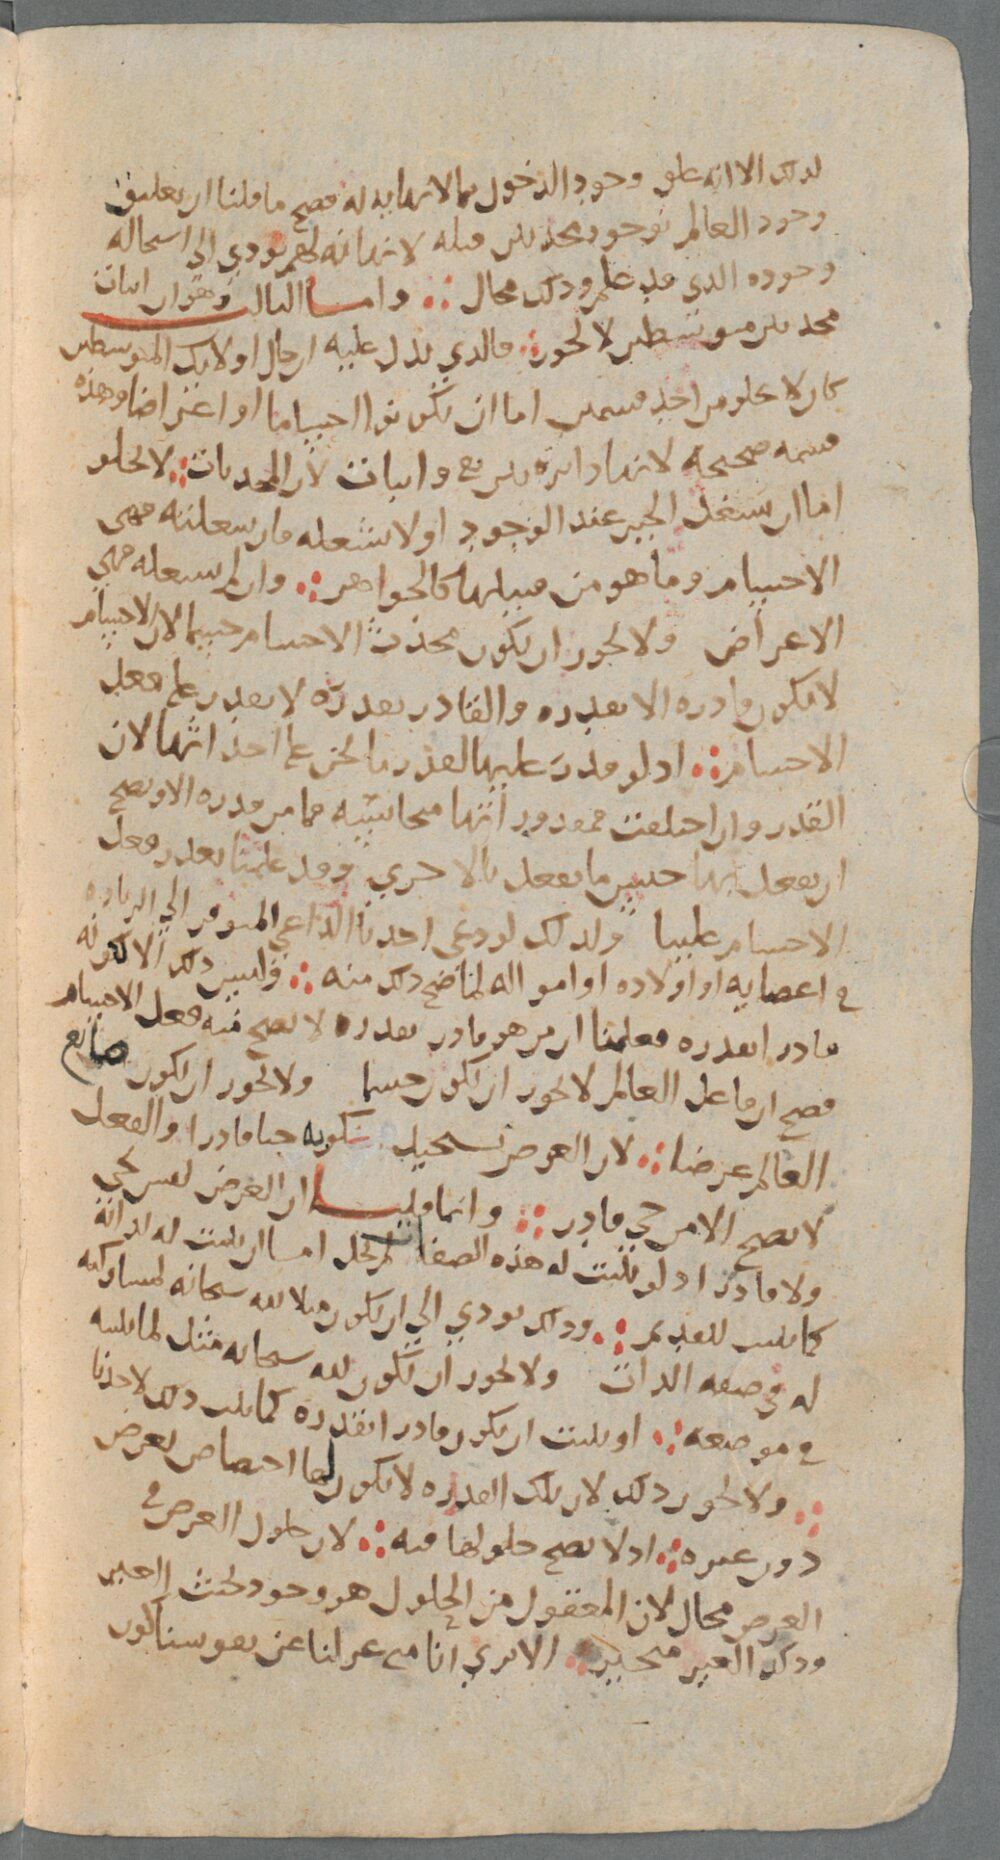 لذلك الا انه علق وجود الدخول بما لا نهاية له فصح ما قلنا ان تعليق
وجود العالم بوجود محدثين قبله لا نهاية لهم يودي الى استحالة
وجوده الذي قد علم وذلك محال ∴ واما الثالث وهو ان اثبات
محدثين متوسطين لا يجوز ∴ فالذي يدل عليه ان حال اولايك المتوسطين
كان لا يخلو من احد قسمين اما ان يكونوا اجساما او اعراضا وهذه
قسمة صحيحة لانها دايرة بين نفي واثبات لان المحدثات ∴ لا تخلو
اما ان تشغل الحيز عند الوجود او لا تشغله فان شغلته فهي
الاجسام وما هو من قبيلها كالجواهر ∴ وان لم تشغله فهي
الاعراض ولا يجوز ان يكون محدث الاجسام جسما لان الاجسام
لا تكون قادرة الا بقدرة والقادر بقدرة لا يقدر على فعل
الاجسام ∴ اذ لو قدر عليها لقدرنا نحن على احداثها لان
القدر وان اختلفت فمقدوراتها متجانسة فما من قدرة الا ويصح
ان يفعل بها جنس ما يفعل بالاخرى وقد علمنا تعذر فعل
الاجسام علينا ولذلك لو دعى احدنا الداعي المتوفر الى الزيادة
في اعضايه او اولاده او امواله لما صح ذلك منه ∴ وليس ذلك الا لكونه
قادرا بقدرة فعلمنا ان من هو قادر بقدرة لا يصح منه فعل الاجسام
فصح ان فاعل العالم لا يجوز ان يكون جسما ولا يجوز ان يكون صانع
العالم عرضا ∴ لان العرض يستحيل كونه حيا قادرا والفعل
لا يصح الا من حي قادر ∴ وانما قلنا ان العرض ليس بحي
ولا قادر اذ لو ثبتت له هذه الصفات لم يخل اما ان تثبت له لذاته
كما يثبت للقديم ∴ وذلك يودي الى ان يكون مثلا لله سبحانه لمشاركته
له في صفة الذات ولا يجوز ان يكون لله سبحانه مثل لما نبينه
في موضعه ∴ او يثبت ان يكون قادرا بقدرة كما يثبت ذلك لاحدنا
∴ ولا يجوز ذلك لان تلك القدرة لا يكون لها اختصاص بعرض
دون غيره ∴ اذ لا يصح حلولها فيه ∴ لان حلول العرض في
العرض محال لان المعقول من الحلول هو وجوده بحيث الغير
وذلك الغير متحيز ∴ الا ترى انا متى عزلنا عن نفوسنا كون